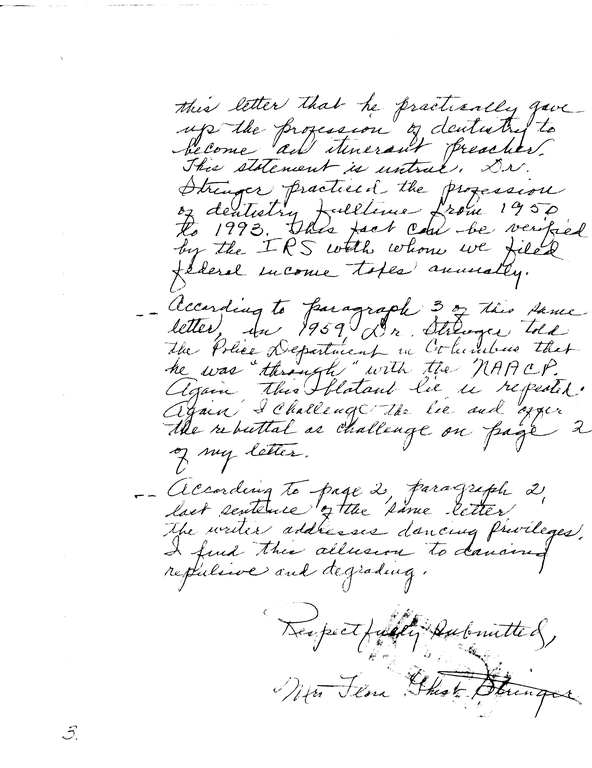 this letter that he practically gave
up the profession of dentistry to
become an itinerant preacher.
This statement is untrue. Dr.
Stringer practised the profession
of dentistry fulltime from 1950
to 1993. This fact can be verified
by the IRS with whom we filed
federal income taxes annually.
-- According to paragraph 3 of this same
letter, in 1959, Dr. Stringer told
the Police Department in Columbus that
he was "through" with the NAACP.
Again this blatant lie is repeated.
Again I challenge the lie and offer
the rebuttal as challenge on page 2
of my letter.
-- According to page 2, paragraph 2,
last sentence of the same letter
the writer addresses dancing privileges.
I find this allusion to dancing
repulsive and degrading.
Respectfully submitted,
Mrs Flora Ghist Stringer
3.